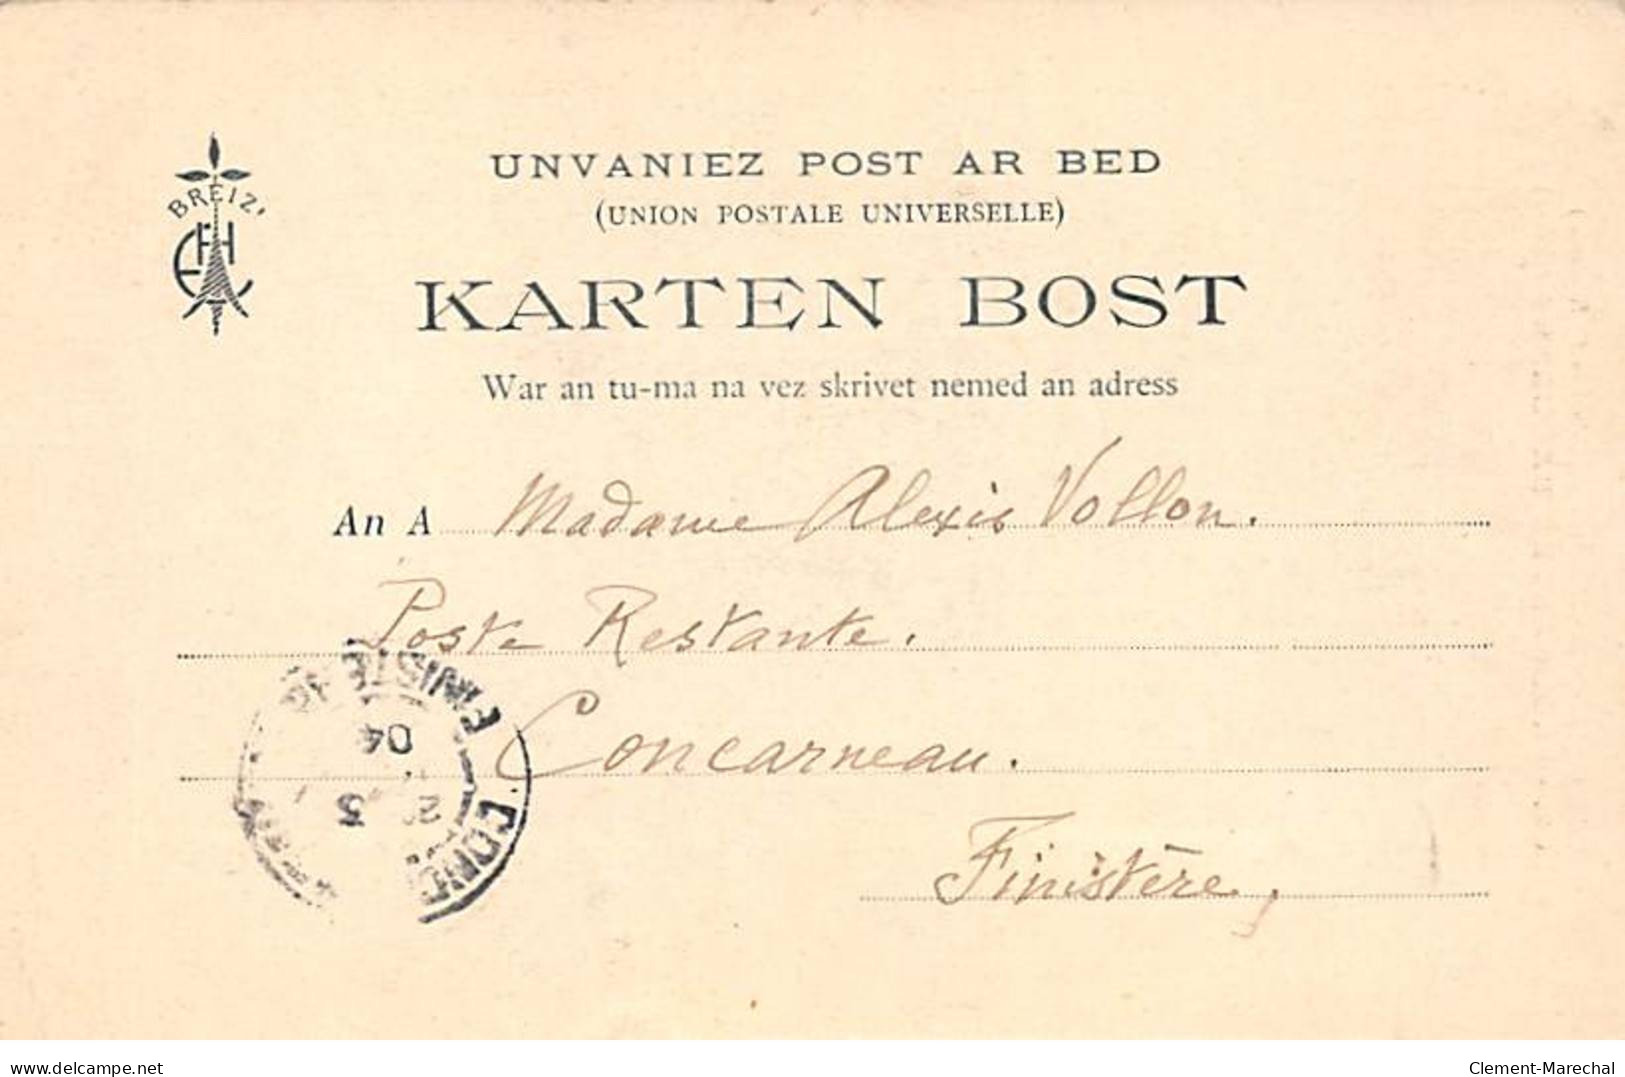 BREIZ'
UNVANIEZ POST AR BED
(UNION POSTALE UNIVERSELLE)
KARTEN BOST
War an tu-ma na vez skrivet nemed an adress
An A Madame Alexis Vollon.
Poste Restante.
Concarneau.
Finistère,
FINISTERE
04
5
www.delcampe.net
Clement-Marechal